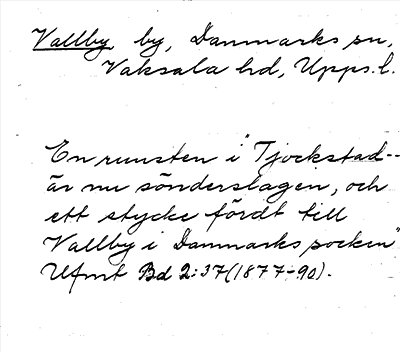 Vallby by, Danmarks sn,
Vaksala hd, Upps. l.
En runsten i "Tjockstad--
är nu sönderslagen, och
ett stycke fördt till
Vallby i Danmarks socken"
Ufmt Bd 2:37 (1877-90).